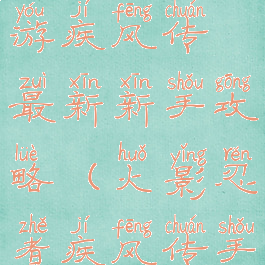 yóu jí fēng chuán
游疾风传
zuì xīn xīn shǒu gōng
最新新手攻
luè huǒ yǐng rěn
略（火影忍
zhě jí fēng chuán shǒu
者疾风传手